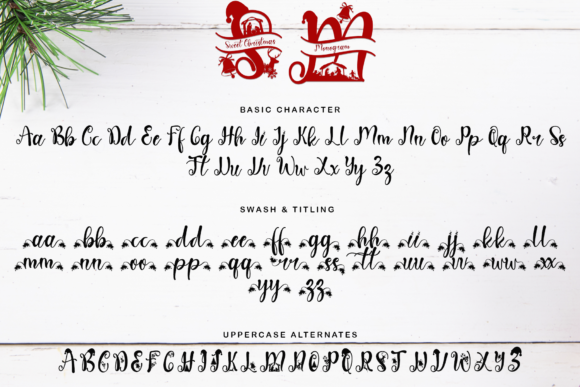 Sweet Christmas
S
Monogram
M
BASIC CHARACTER
Aa Bb Cc Dd Ee Ff Gg Hh Ii Jj Kk Ll Mm Nn Oo Pp Qq Rr Ss
Tt Uu Vv Ww Xx Yy Zz
SWASH & TITLING
aa bb cc dd ee ff gg hh ii jj kk ll
mm nn oo pp qq rr ss tt uu vv ww xx
yy zz
UPPERCASE ALTERNATES
A B C D E F G H I J K L M N O P Q R S T U V W X Y Z